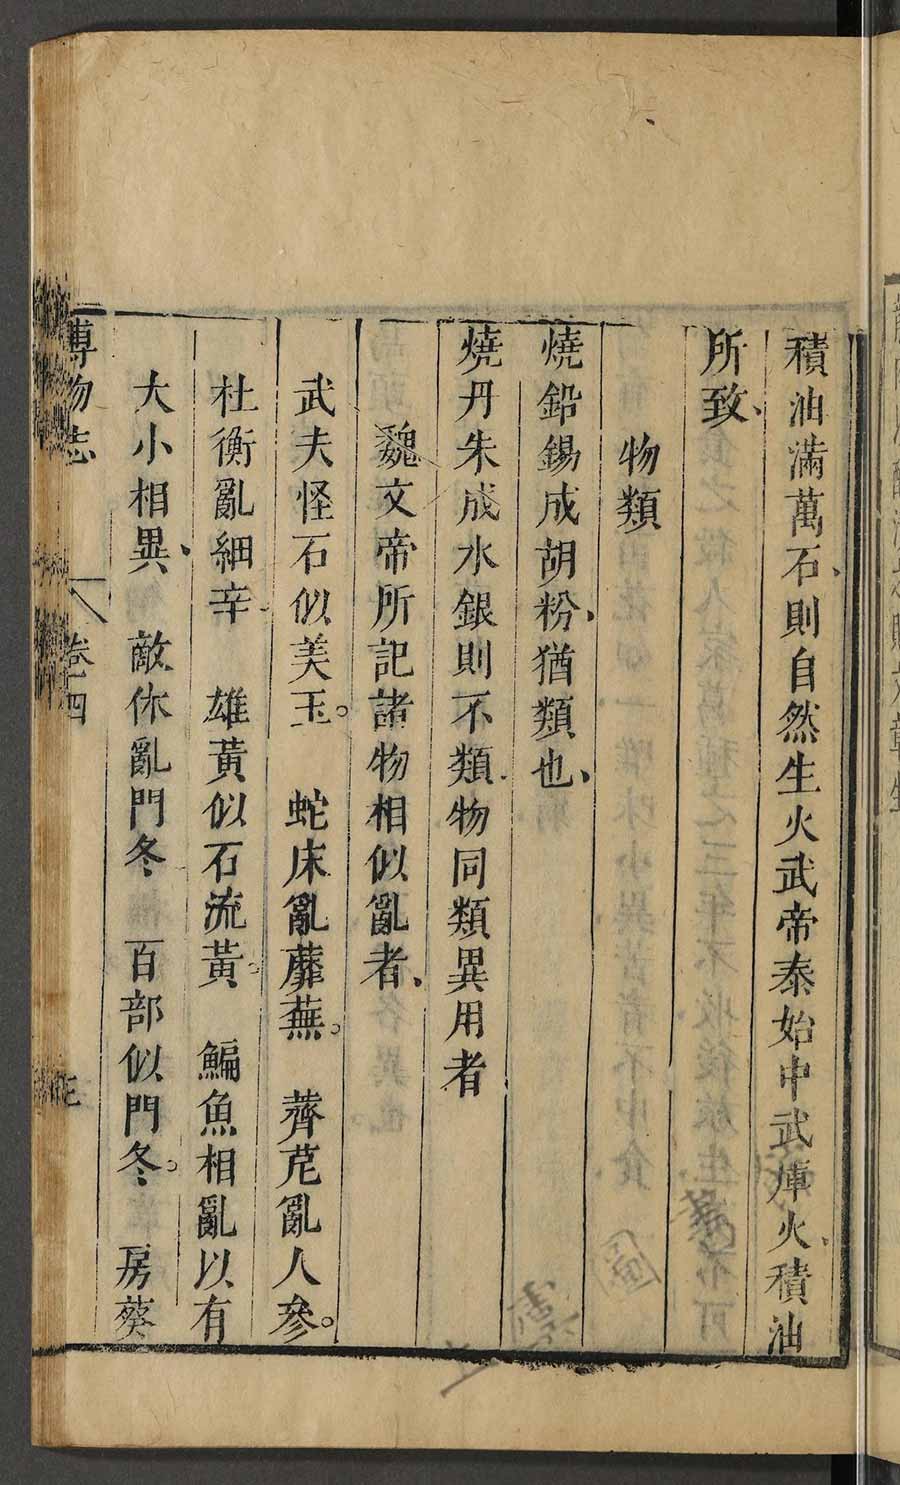 積油滿萬石、則自然生火武帝泰始中武庫火、積油
所致、
物類
燒鉛錫成胡粉、猶類也、
燒丹朱成水銀則不類、物同類異用者
魏文帝所記諸物相似亂者、
武夫怪石似美玉。 蛇床亂蘼蕪。 薺苨亂人參。
杜衡亂細辛、 雄黃似石流黃。 鯿魚相亂以有
大小相異、 敵休亂門冬 百部似門冬。 房葵
博物志 卷四